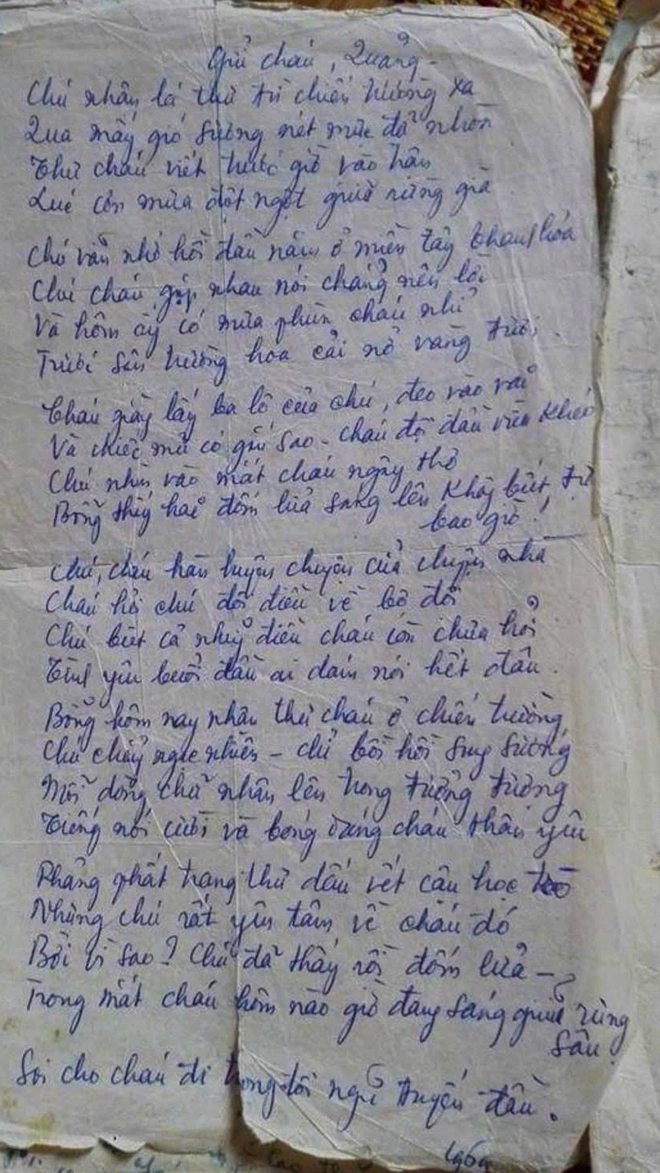 Gửi cháu, Quảng -
Chú nhận lá thư từ chiến trường xa
Qua mấy gió sương nét mực đã nhòa
Thư cháu viết trước giờ vào trận
Lúc cơn mưa đột ngột giữa rừng già
Chú vẫn nhớ hồi đầu năm ở miền tây Thanh hóa
Chú cháu gặp nhau nói chẳng nên lời
Và hôm ấy có mưa phùn cháu nhỉ
Trước sân trường hoa cải nở vàng tươi.
Cháu giằng lấy ba lô của chú, đeo vào vai
Và chiếc mũ có gắn sao - cháu đội đầu vừa khéo
Chú nhìn vào mắt cháu ngây thơ
Bỗng thấy hai đốm lửa sáng lên không biết tự
bao giờ!
Chú, cháu hàn huyên chuyện cửa chuyện nhà
Cháu hỏi chú đôi điều về bộ đội
Chú biết cả những điều cháu còn chưa hỏi
Tình yêu buổi đầu ai dám nói hết đâu.
Bỗng hôm nay nhận thư cháu ở chiến trường
Chú chẳng ngạc nhiên - chỉ bồi hồi sung sướng
Mỗi dòng chữ nhân lên trong tưởng tượng
Tiếng nói cười và bóng dáng cháu thân yêu
Phảng phất trang thư dấu vết cậu học trò
Nhưng chú rất yên tâm về cháu đó
Bởi vì sao? Chú đã thấy rồi đốm lửa -
Trong mắt cháu hôm nào giờ đang sáng giữa rừng
sâu
Soi cho cháu đi trong đội ngũ tuyến đầu.